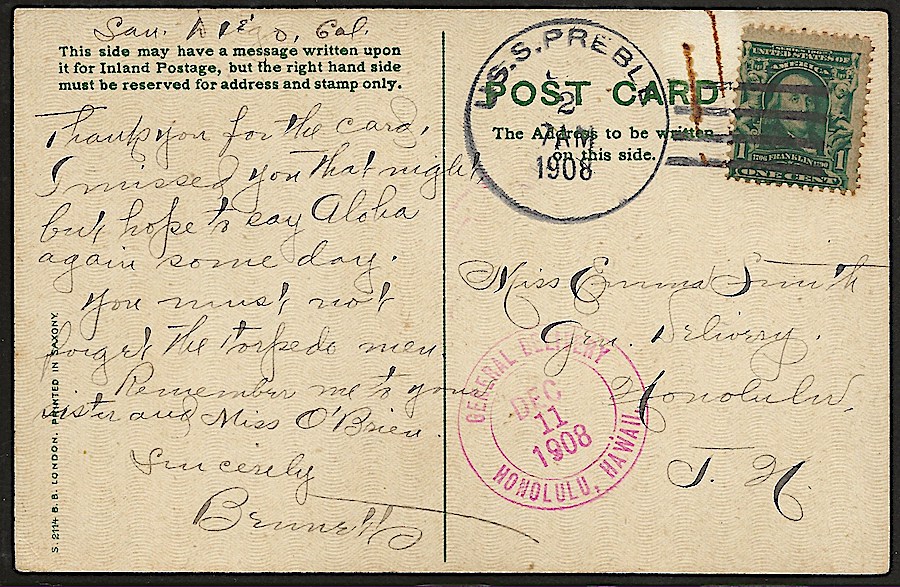 San Diego, Cal.
This side may have a message written upon
it for Inland Postage, but the right hand side
must be reserved for address and stamp only.
Thank you for the card,
I missed you that night
but hope to say Aloha
again some day.
You must not
forget the torpedo men.
Remember me to your
sister and Miss O'Brien.
Sincerely
Bennett
S. 2114 B. B. LONDON. PRINTED IN SAXONY.
U.S.S. PREBLE
2
7 AM
1908
POST CARD
The Address to be written
on this side.
SERIES 1902
UNITED STATES OF
AMERICA
1 1706 FRANKLIN 1790 1
ONE CENT
Miss Emma Smith
Gen. Delivery.
Honolulu,
T. H.
GENERAL DELIVERY
DEC
11
1908
HONOLULU, HAWAII